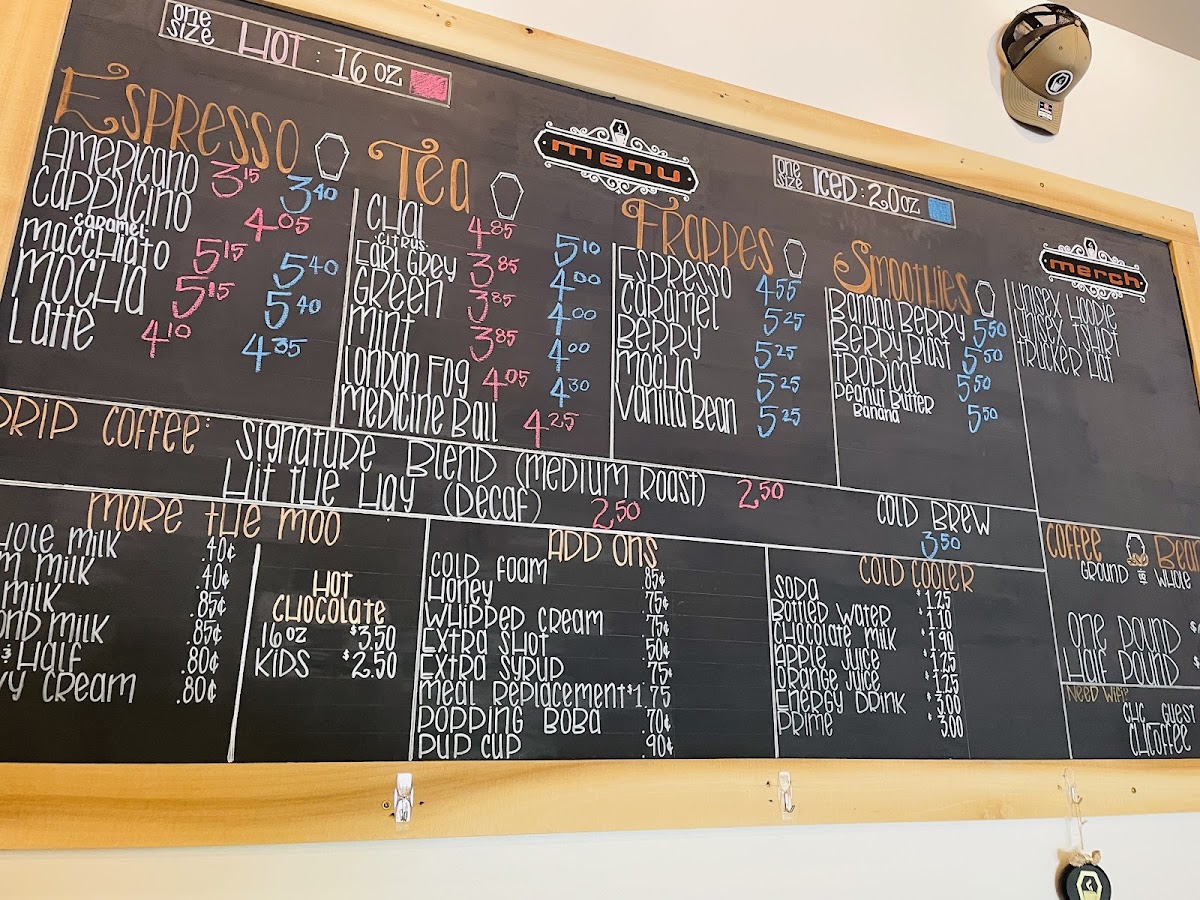 ONE SIZE HOT : 16 oz
Espresso
Americano 3.15 3.40
Cappucino 4.05
caramel
macchiato 5.15 5.40
Mocha 5.15 5.40
Latte 4.10 4.35
Tea
Chai 4.85 5.10
citrus
Earl Grey 3.85 4.00
Green 3.85 4.00
Mint 3.85 4.00
London Fog 4.05 4.30
Medicine Ball 4.25
menu
ONE SIZE ICED : 20 oz
Frappes
Espresso 4.55
Caramel 5.25
Berry 5.25
Mocha 5.25
Vanilla Bean 5.25
Smoothies
Banana Berry 5.50
Berry Blast 5.50
Tropical 5.50
Peanut Butter
Banana 5.50
merch
Unisex Hoodie
Unisex Tshirt
Trucker Hat
Drip Coffee: Signature Blend (Medium Roast) 2.50
Hit the Hay (Decaf) 2.50
Cold Brew
3.50
More the Moo
hole milk 40¢
m milk 40¢
milk .85¢
ond milk .85¢
& Half .80¢
vy cream .80¢
Hot
Chocolate
16 oz $3.50
Kids $2.50
Add Ons
Cold Foam 85¢
Honey .75¢
Whipped Cream .75¢
Extra Shot .50¢
Extra Syrup .75¢
Meal Replacement $1.75
Popping Boba .70¢
Pup Cup .90¢
Cold Cooler
Soda $1.25
Bottled Water $1.10
Chocolate Milk $1.90
Apple Juice $1.25
Orange Juice $1.25
Energy Drink $3.00
Prime $3.00
Coffee Bean
Ground or Whole
One Pound
Half Pound
Need Wifi?
CHC_Guest
CHCoffee